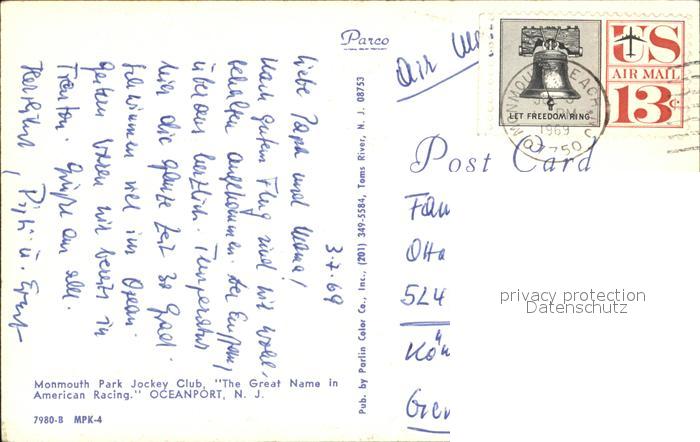 Parco
Air
LET FREEDOM RING
US
AIR MAIL
13c
MONMOUTH BEACH
1969
07750
Post Card
Fam
Otto
524
Kön
Ger
privacy protection
Datenschutz
3.7.69
Liebe Papa und Mama,
Nach gutem Flug sind wir wohl-
behalten angekommen. Der Empfang
überaus herzlich. Temperatur
hier die ganze Zeit 30 Grad.
Schwimmen viel im Ozean.
Gestern waren wir bereits in
Trenton. Grüße an alle.
Herzlichst, u. Ernst
Pub. by Parlin Color Co., Inc., (201) 349-5584, Toms River, N. J. 08753
Monmouth Park Jockey Club, "The Great Name in
American Racing." OCEANPORT, N. J.
7980-B MPK-4